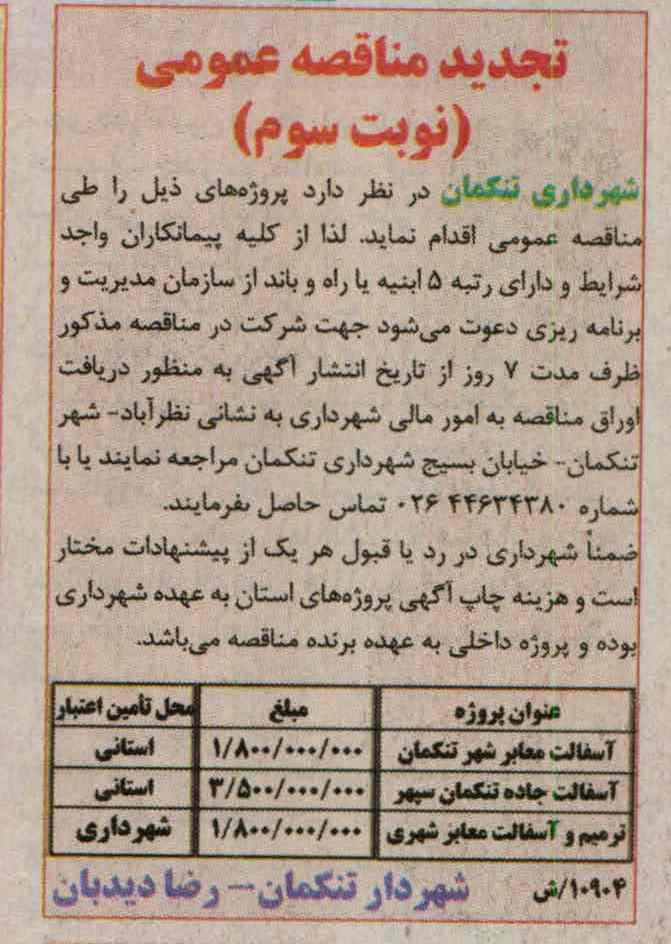 تجدید مناقصه عمومی
(نوبت سوم)
شهرداری تنکمان در نظر دارد پروژه‌های ذیل را طی
مناقصه عمومی اقدام نماید. لذا از کلیه پیمانکاران واجد
شرایط و دارای رتبه ۵ ابنیه یا راه و باند از سازمان مدیریت و
برنامه ریزی دعوت می‌شود جهت شرکت در مناقصه مذکور
ظرف مدت ۷ روز از تاریخ انتشار آگهی به منظور دریافت
اوراق مناقصه به امور مالی شهرداری به نشانی نظرآباد- شهر
تنکمان- خیابان بسیج شهرداری تنکمان مراجعه نمایند یا با
شماره ۴۴۶۳۴۳۸۰ ۰۲۶ تماس حاصل بفرمایند.
ضمناً شهرداری در رد یا قبول هر یک از پیشنهادات مختار
است و هزینه چاپ آگهی پروژه‌های استان به عهده شهرداری
بوده و پروژه داخلی به عهده برنده مناقصه می‌باشد.
عنوان پروژه مبلغ محل تأمین اعتبار
آسفالت معابر شهر تنکمان ۱/۸۰۰/۰۰۰/۰۰۰ استانی
آسفالت جاده تنکمان سپهر ۳/۵۰۰/۰۰۰/۰۰۰ استانی
ترمیم و آسفالت معابر شهری ۱/۸۰۰/۰۰۰/۰۰۰ شهرداری
۱۰۹۰۴/ش شهردار تنکمان– رضا دیدبان